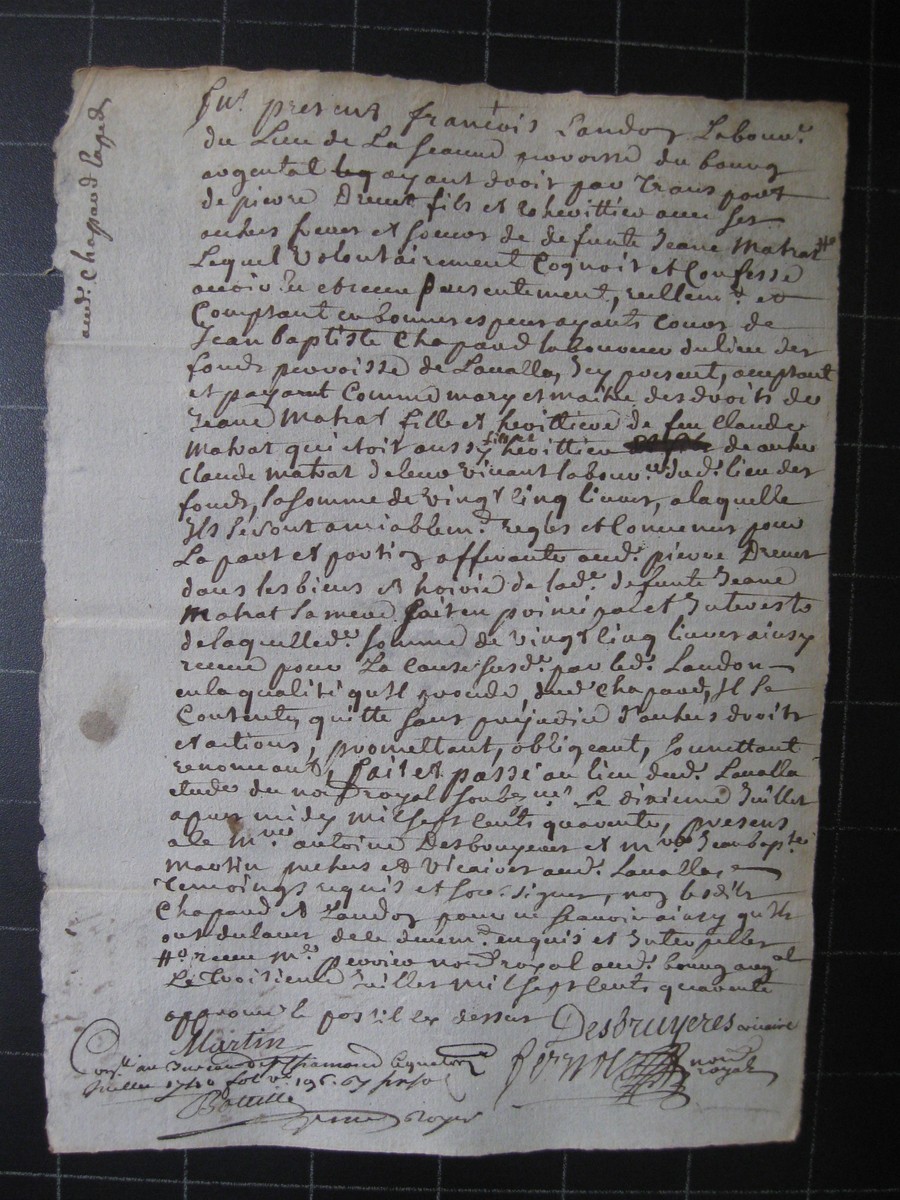 aud. Chappard laffeds
fut present françois Landon Labour.
du Lieu de La feanne parroisse du bourg
argental ayant droit par Transport
de pierre Drevet fils et coherittier avec ses
autres freres et soeurs de defunte Jeane Matrat #
Lequel volontairement Cognoit et Confesse
avoir Eu et receu presentement, reellem.t et
Comptant en bonnes especes ayants cours de
Jean baptiste Chapard laboureur du lieu des
fonds parroisse de Lavalla, Jcy present, acceptant
et payant Comme mary et maitre des droits de
Jeane Matrat fille et herittiere de feu Claude
Matrat qui etoit aussy fils et herittier de autre
Claude matrat de leur vivant labour.rs dud. lieu des
fonds, la somme de vingt Cinq livres, a laquelle
Jls se sont amiablem.t regles et Convenus pour
La part et portion afferante aud. pierre Drevet
dans les biens et hoirie de lad.e defunte Jeane
Matrat sa mere soit en principal et Interests
de laquelle d.e somme de vingt Cinq livres ainsy
receue pour La Cause susd.e par led. Landon
en la qualité qu'il procede, dud. Chapard, Jl se
Contente, quitte sans prejudice d'autres droits
et actions, promettant, obligeant, soumettant
renonçant, fait et passé au lieu dud. Lavalla
etude du no.re royal soub.né Le dixieme Juillet
apres midy mil sept Cents quarente, presens
a ce M.re antoine Desbruyeres et M.re Jean bap.te
Martin pretres et Vicaires aud. Lavalla,
temoings requis et sous-signes, non lesdits
Chapard et Landon pour ne sçavoir ainsy qu'ils
ont declaré de ce deuem.t enquis et Interpellés
# receu M.e perrier no.re royal aud. bourg arg.al
Le troisieme Juillet mil sept Cents quarente
approuvé le postille dessus Desbruyeres vicaire
Martin
no.re royal
au bureau de St Chamond
Juillet 1740 fol. v.